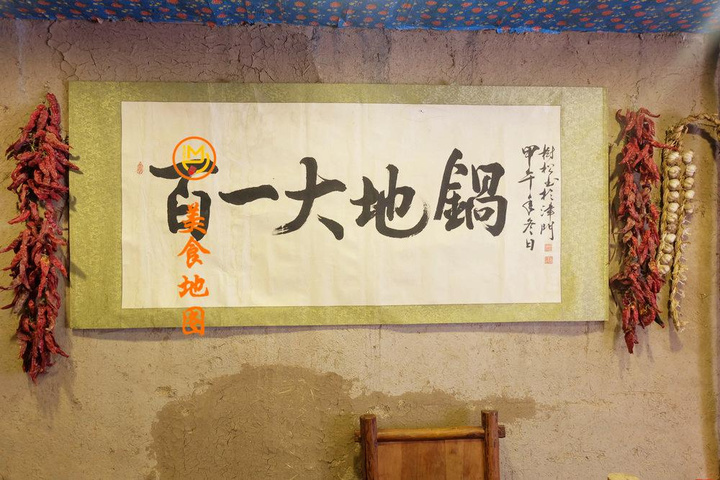 百一大地鍋
甲午年冬日
樹松书於津門
美食地图